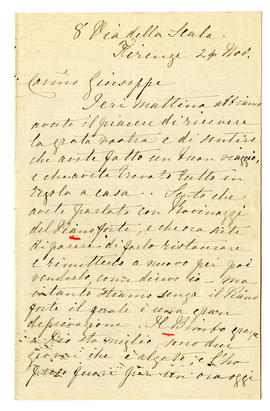 8 Via della Scala
Firenze 24 Nov.
Giuseppe
Ieri mattina abbiamo
avuto il piacere di ricevere
la grata vostra e di sentire
che avete fatto un buon viaggio,
e che avete trovato tutto in
regola a casa. Sento che
avete parlato con
del Pianoforte, e che ora siete
di parere di farlo ristaurare
e rimetterlo a nuovo per poi
venderlo, come dicevo io - ma
intanto stiamo senza il Piano
forte il quale è una gran
deprivazione. Il Bimbo
a Dio sta meglio, sono due
giorni che è alzato, e l'ho
fuori per un ora oggi